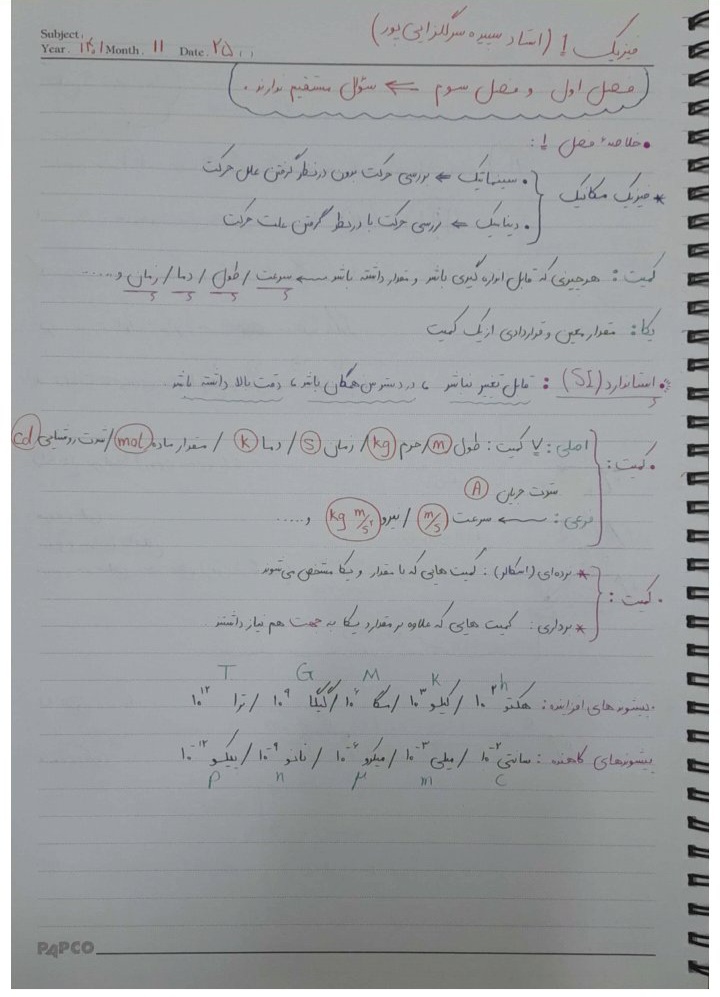 Subject:
Year. ۱۴۰۱ Month. ۱۱ Date. ۲۵
فیزیک ۱ (استاد سپیده سرگلزایی پور)
فصل اول و فصل سوم ← سؤال مستقیم ندارند.
• خلاصهٔ فصل ۱:
* فیزیک مکانیک
• سینماتیک ← بررسی حرکت بدون درنظر گرفتن علل حرکت
• دینامیک ← بررسی حرکت با درنظر گرفتن علت حرکت
کمیت: هرچیزی که قابل اندازه گیری باشد و مقدار داشته باشد ← سرعت / طول / دما / زمان و .....
یکا: مقدار معین و قراردادی از یک کمیت
• استاندارد (SI): قابل تغییر نباشد، در دسترس همگان باشد، دقت بالا داشته باشد
• کمیت:
اصلی: ۷ کمیت: طول m / جرم kg / زمان s / دما k / مقدار ماده mol / شدت روشنایی cd
شدت جریان A
فرعی: ← سرعت m/s / نیرو kg m/s² و .....
• کمیت:
* نرده‌ای (اسکالر): کمیت هایی که با مقدار و یکا مشخص می‌شوند
* برداری: کمیت هایی که علاوه بر مقدار و یکا به جهت هم نیاز داشتند.
h K M G T
پیشوندهای افزاینده: هکتو ۱۰^۲ / کیلو ۱۰^۳ / مگا ۱۰^۶ / گیگا ۱۰^۹ / ترا ۱۰^۱۲
پیشوندهای کاهنده: سانتی ۱۰^-۲ / میلی ۱۰^-۳ / میکرو ۱۰^-۶ / نانو ۱۰^-۹ / پیکو ۱۰^-۱۲
c m μ n p
PAPCO